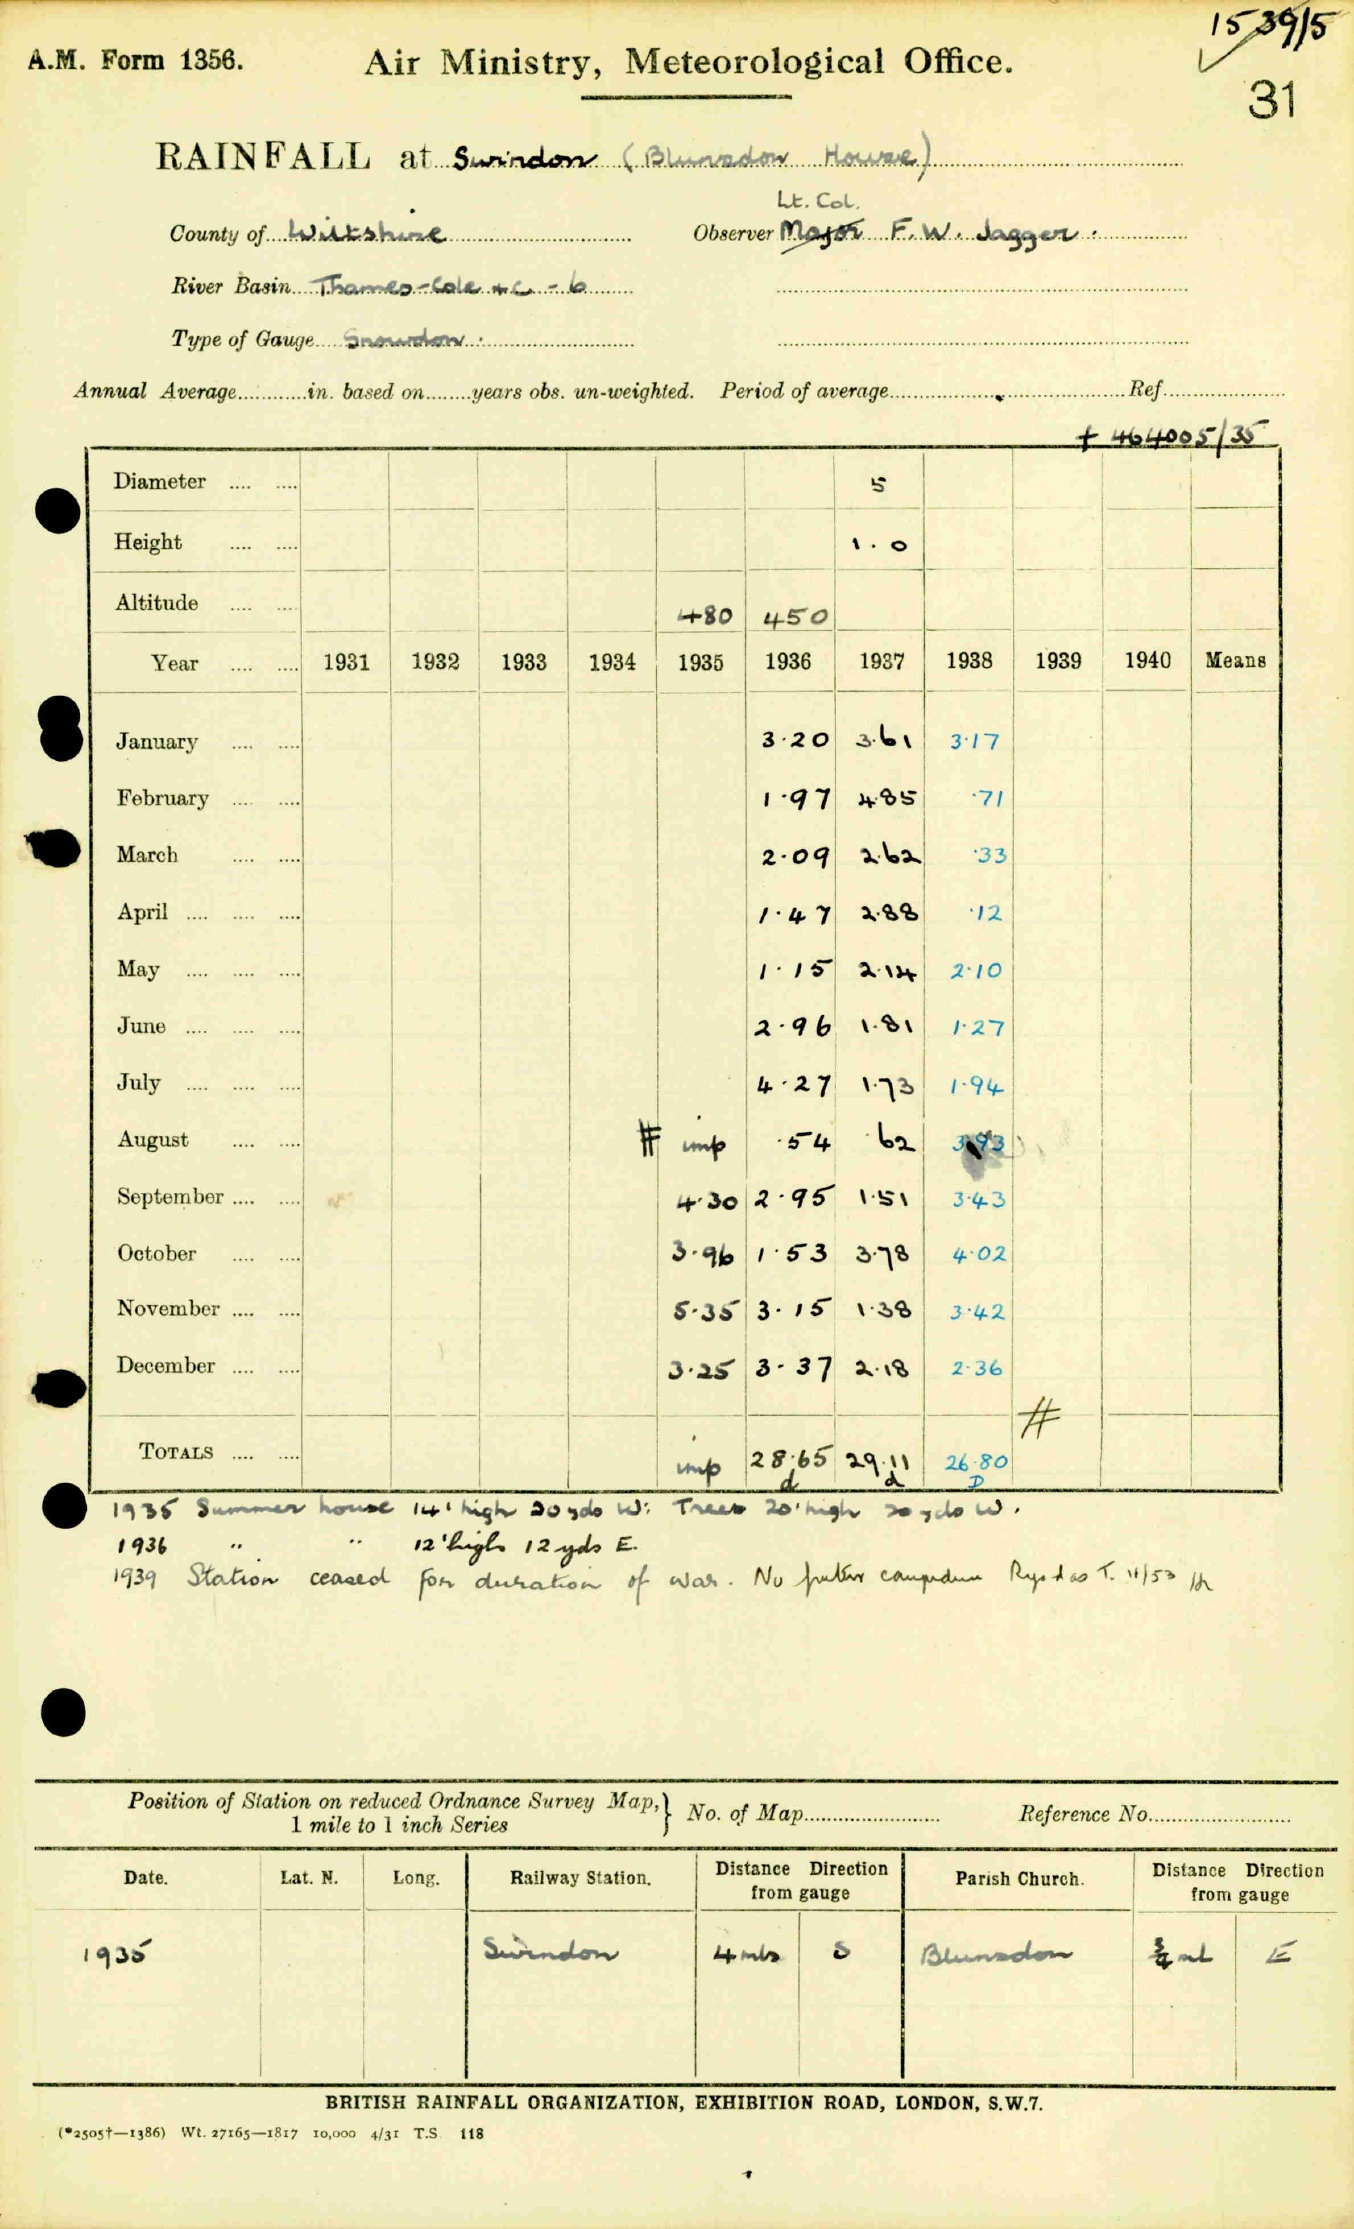 15 39/5
A.M. Form 1356.
Air Ministry, Meteorological Office.
31
RAINFALL at Swindon (Blunsdon House)
Lt. Col.
County of Wiltshire Observer Major F. W. Jagger.
River Basin Thames-Cole &c - 6
Type of Gauge Snowdon.
Annual Average............in. based on........years obs. un-weighted. Period of average........................Ref.....................
+ 464005/35
Diameter .... .... 5
Height .... .... 1.0
Altitude .... .... 480 450
Year .... .... 1931 1932 1933 1934 1935 1936 1937 1938 1939 1940 Means
January .... .... 3·20 3·61 3·17
February .... .... 1·97 4·85 ·71
March .... .... 2·09 2·62 ·33
April .... .... .... 1·47 2·88 ·12
May .... .... .... 1·15 2·14 2·10
June .... .... .... 2·96 1·81 1·27
July .... .... .... 4·27 1·73 1·94
August .... .... # imp ·54 ·62 3·93
September .... .... 4·30 2·95 1·51 3·43
October .... .... 3·96 1·53 3·78 4·02
November .... .... 5·35 3·15 1·38 3·42
December .... .... 3·25 3·37 2·18 2·36
#
TOTALS .... .... imp 28·65 29·11 26·80
d d D
1935 Summer house 14' high 20 yds W: Trees 20' high 20 yds W.
1936 " " 12' high 12 yds E.
1939 Station ceased for duration of war. No T. 11/53
Position of Station on reduced Ordnance Survey Map,} No. of Map........................ Reference No.........................
1 mile to 1 inch Series
Date. Lat. N. Long. Railway Station. Distance Direction from gauge Parish Church. Distance Direction from gauge
1935 Swindon 4 mls S Blunsdon ¾ ml E
BRITISH RAINFALL ORGANIZATION, EXHIBITION ROAD, LONDON, S.W.7.
(*2505†—1386) Wt. 27165—1817 10,000 4/31 T.S. 118